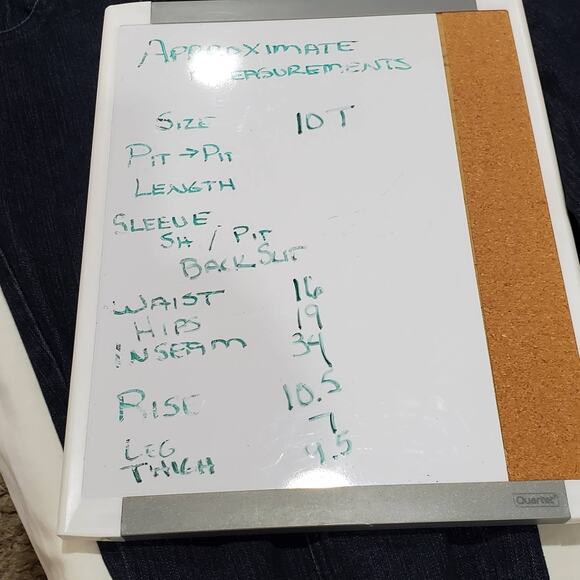 APPROXIMATE
MEASUREMENTS
SIZE 10 T
PIT → PIT
LENGTH
SLEEVE
SH / PIT
BACK SLIT
WAIST 16
HIPS 19
INSEAM 34
RISE 10.5
LEG 7
THIGH 9.5
Quartet